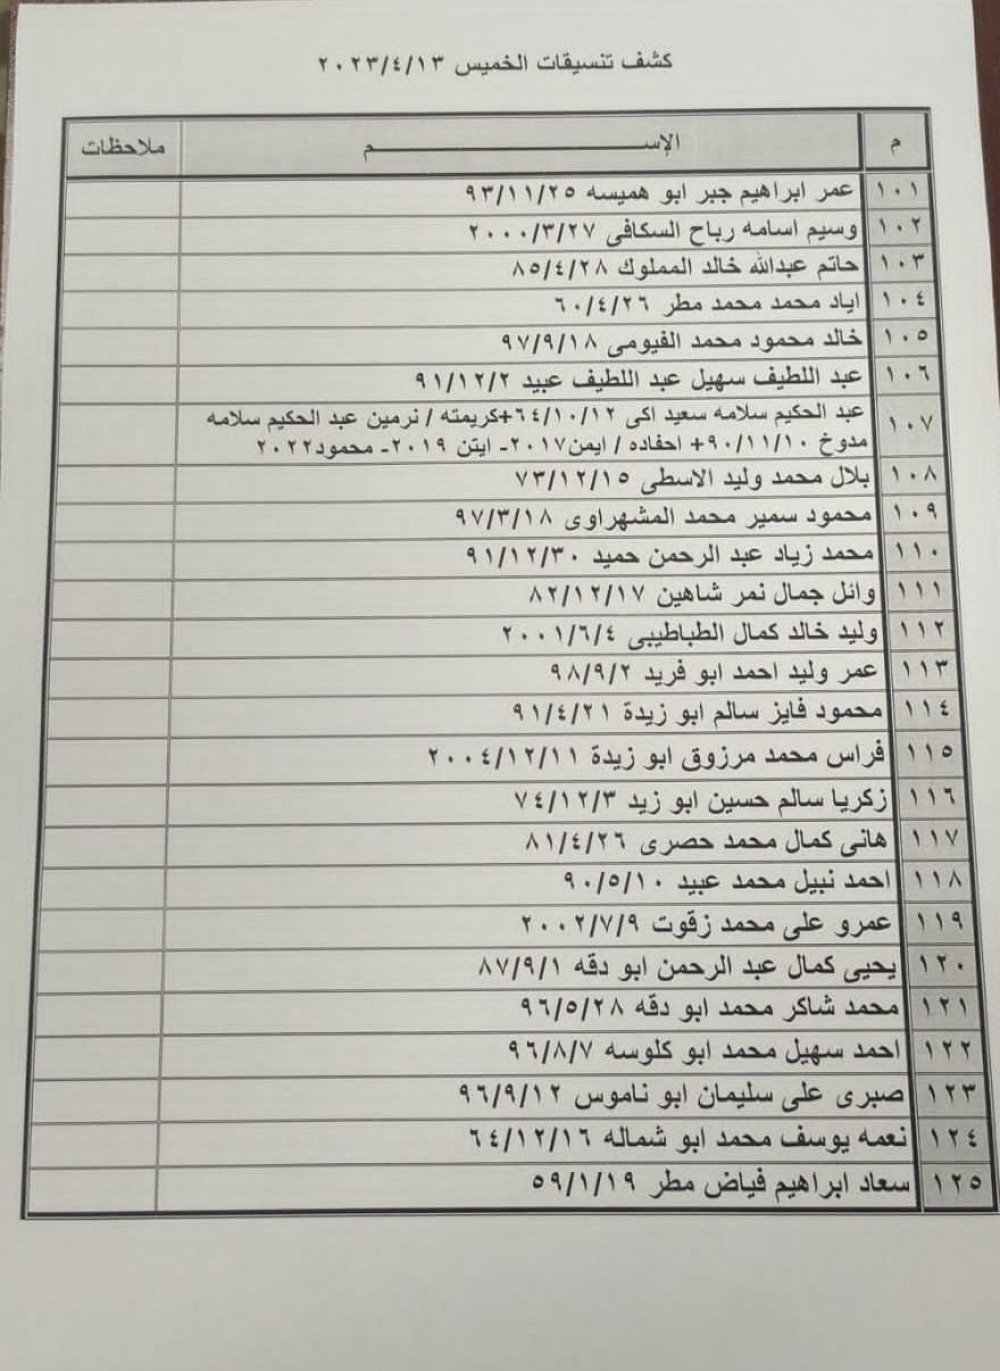 كشف تنسيقات الخميس ٢٠٢٣/٤/١٣
م الإســـــــم ملاحظات
١٠١ عمر ابراهيم جبر ابو هميسه ٩٣/١١/٢٥
١٠٢ وسيم اسامه رباح السكافى ٢٠٠٠/٣/٢٧
١٠٣ حاتم عبدالله خالد المملوك ٨٥/٤/٢٨
١٠٤ اياد محمد محمد مطر ٦٠/٤/٢٦
١٠٥ خالد محمود محمد الفيومى ٩٧/٩/١٨
١٠٦ عبد اللطيف سهيل عبد اللطيف عبيد ٩١/١٢/٢
١٠٧ عبد الحكيم سلامه سعيد اكى ٦٤/١٠/١٢+كريمته / نرمين عبد الحكيم سلامه
مدوخ ٩٠/١١/١٠+ احفاده / ايمن٢٠١٧- ايتن ٢٠١٩- محمود٢٠٢٢
١٠٨ بلال محمد وليد الاسطى ٧٣/١٢/١٥
١٠٩ محمود سمير محمد المشهراوى ٩٧/٣/١٨
١١٠ محمد زياد عبد الرحمن حميد ٩١/١٢/٣٠
١١١ وائل جمال نمر شاهين ٨٢/١٢/١٧
١١٢ وليد خالد كمال الطباطيبى ٢٠٠١/٦/٤
١١٣ عمر وليد احمد ابو فريد ٩٨/٩/٢
١١٤ محمود فايز سالم ابو زيدة ٩١/٤/٢١
١١٥ فراس محمد مرزوق ابو زيدة ٢٠٠٤/١٢/١١
١١٦ زكريا سالم حسين ابو زيد ٧٤/١٢/٣
١١٧ هانى كمال محمد حصرى ٨١/٤/٢٦
١١٨ احمد نبيل محمد عبيد ٩٠/٥/١٠
١١٩ عمرو على محمد زقوت ٢٠٠٢/٧/٩
١٢٠ يحيى كمال عبد الرحمن ابو دقه ٨٧/٩/١
١٢١ محمد شاكر محمد ابو دقه ٩٦/٥/٢٨
١٢٢ احمد سهيل محمد ابو كلوسه ٩٦/٨/٧
١٢٣ صبرى على سليمان ابو ناموس ٩٦/٩/١٢
١٢٤ نعمه يوسف محمد ابو شماله ٦٤/١٢/١٦
١٢٥ سعاد ابراهيم فياض مطر ٥٩/١/١٩